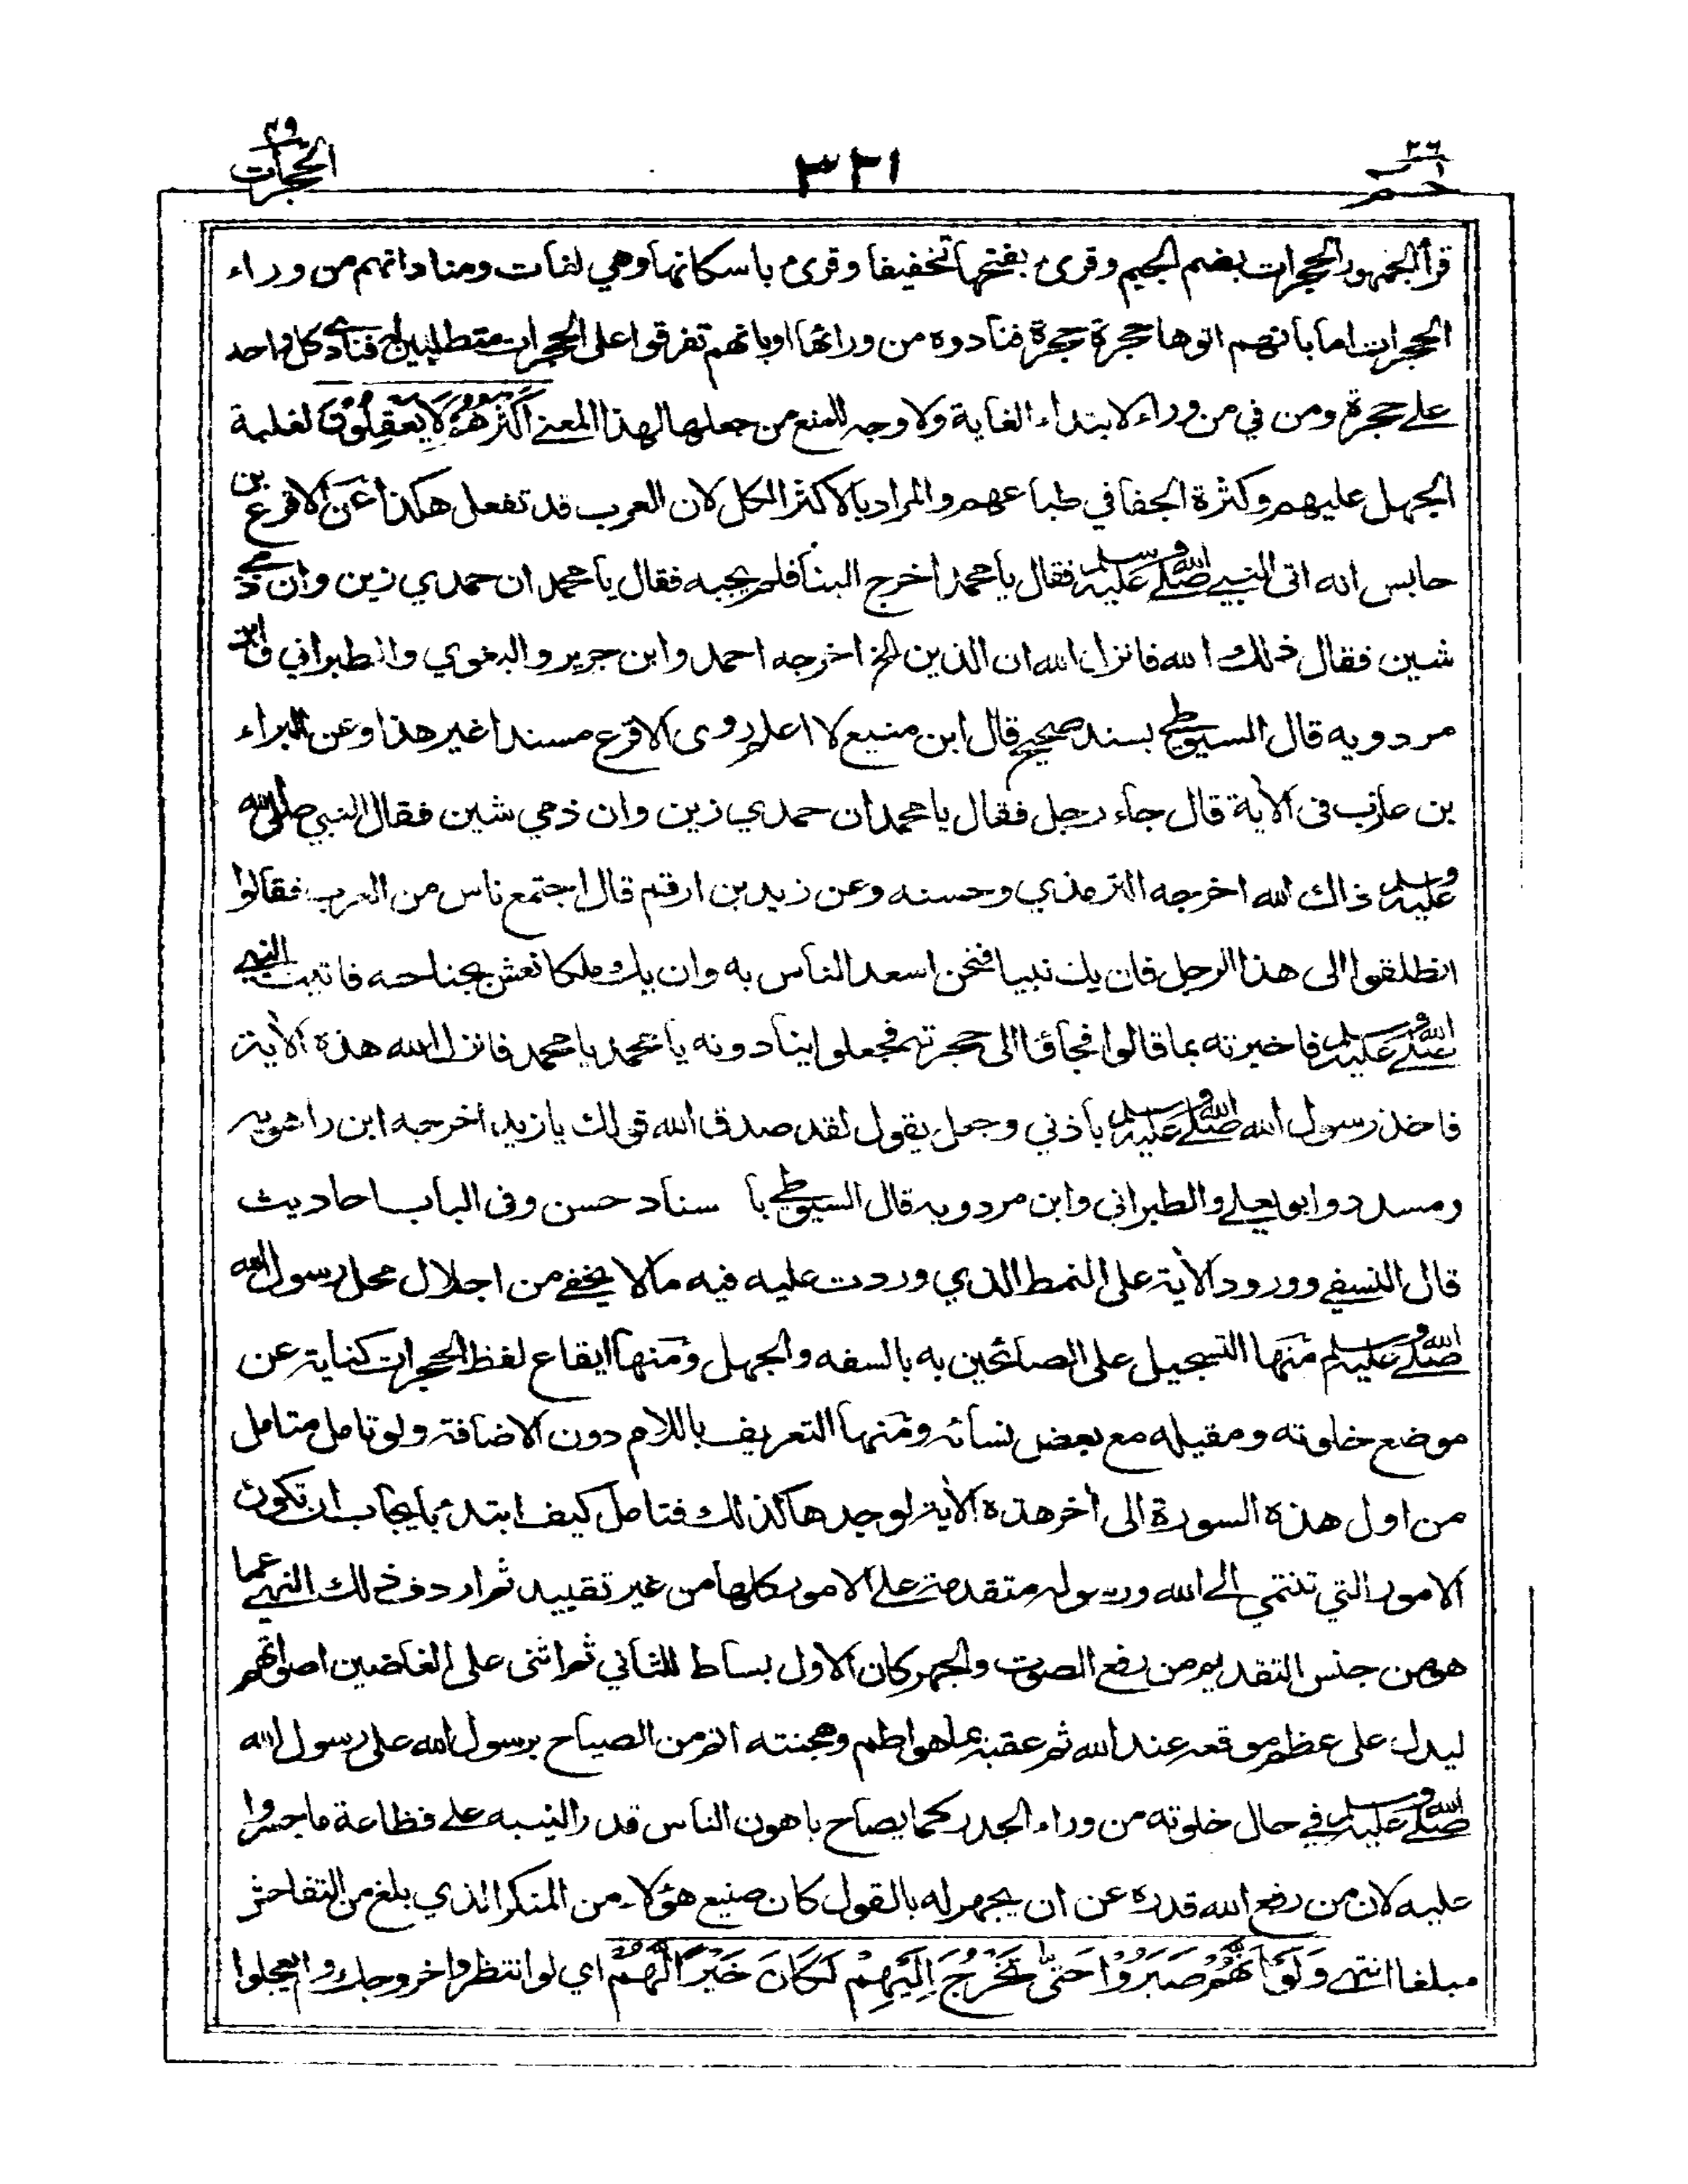 حم ٢٦
٣٢١
الحجرات ٤٩
قرأ الجمهور الحجرات بضم الجيم وقرئ بفتحها تخفيفا وقرئ باسكانها وهي لغات ومناداتهم من وراء
الحجرات اما بانهم اتوها حجرة حجرة فنادوه من ورائها او بانهم تفرقوا على الحجرات متطلبين له فنادى كل واحد
على حجرة ومن في من وراء لابتداء الغاية ولا وجه للمنع من جعلها لهذا المعنى أَكْثَرُهُمْ لَا يَعْقِلُوْنَ لغلبة
الجهل عليهم وكثرة الجفا في طباعهم والمراد بالاكثر الكل لان العرب قد تفعل هكذا عن الاقرع بن
حابس انه اتى النبي صلى الله عليه وسلم فقال يا محمد اخرج الينا فلم يجبه فقال يا محمد ان حمدي زين وان ذمي
شين فقال ذلك الله فانزل الله ان الذين الخ اخرجه احمد وابن جرير والبغوي والطبراني وابن
مردويه قال السيوطي بسند صحيح قال ابن منيع لا اعلم روى الاقرع مسندا غير هذا وعن البراء
بن عازب فى الآية قال جاء رجل فقال يا محمد ان حمدي زين وان ذمي شين فقال النبي صلى الله
عليه وسلم ذاك الله اخرجه الترمذي وحسنه وعن زيد بن ارقم قال اجتمع ناس من العرب فقالوا
انطلقوا الى هذا الرجل فان يك نبيا فنحن اسعد الناس به وان يك ملكا نعش بجناحه فاتيت النبي
صلى الله عليه وسلم فاخبرته بما قالوا فجاؤا الى حجرته فجعلوا ينادونه يا محمد يا محمد فانزل الله هذه الآية
فاخذ رسول الله صلى الله عليه وسلم باذني وجعل يقول لقد صدق الله قولك يا زيد اخرجه ابن راهويه
ومسدد وابو يعلى والطبراني وابن مردويه قال السيوطي با سناد حسن وفى الباب احاديث
قال النسفي وورود الآية على النمط الذي وردت عليه فيه ما لا يخفى من اجلال محل رسول الله
صلى الله عليه وسلم منها التسجيل على الصائحين به بالسفه والجهل ومنها ايقاع لفظ الحجرات كناية عن
موضع خلوته ومقيله مع بعض نسائه ومنها التعريف باللام دون الاضافة ولو تامل متامل
من اول هذه السورة الى آخر هذه الآية لوجدها كذلك فتامل كيف ابتدئ بايجاب ان تكون
الامور التي تنتمي الى الله ورسوله متقدمة على الامور كلها من غير تقييد ثم اردف ذلك النهي عما
هو من جنس التقديم من رفع الصوت والجهر كان الاول بساط للثاني ثم اثنى على الغاضين اصواتهم
ليدل على عظم موقعه عند الله ثم عقبه بما هو اطم وهجنته اتم من الصياح برسول الله على رسول الله
صلى الله عليه وسلم في حال خلوته من وراء الجدر كما يصاح باهون الناس قدرا لينبه على فظاعة ما جسروا
عليه لان من رفع الله قدره عن ان يجهر له بالقول كان صنيع هؤلاء من المنكر الذي بلغ من التفاحش
مبلغا انتهى وَلَوْ اَنَّهُمْ صَبَرُوْا حَتّٰى تَخْرُجَ اِلَيْهِمْ لَكَانَ خَيْرًا لَّهُمْ اي لو انتظروا خروجك ولم يعجلوا